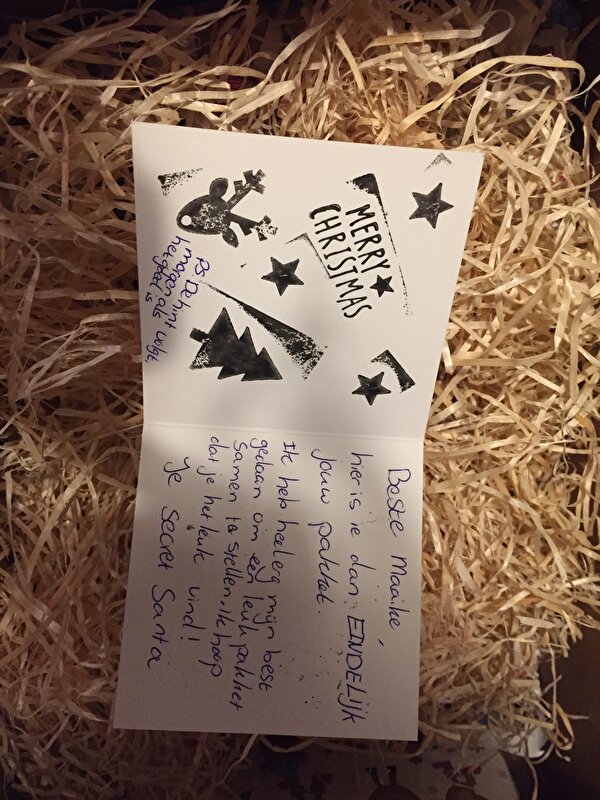 MERRY
CHRISTMAS
PS De hint
als volgt
Beste Maaike
hier is ie dan EINDELIJK
jouw pakket.
Ik heb heel erg mijn best
gedaan om een leuk pakket
samen te stellen. ik hoop
dat je het leuk vind!
Je Secret Santa